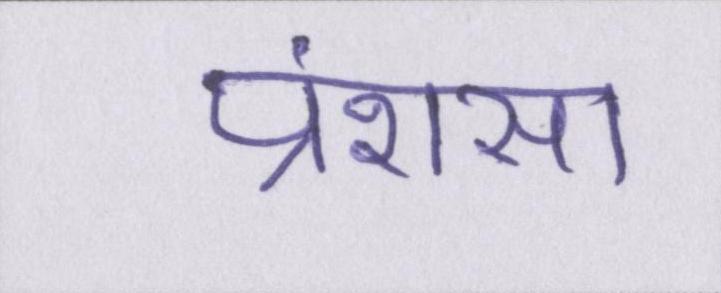 प्रंशसा